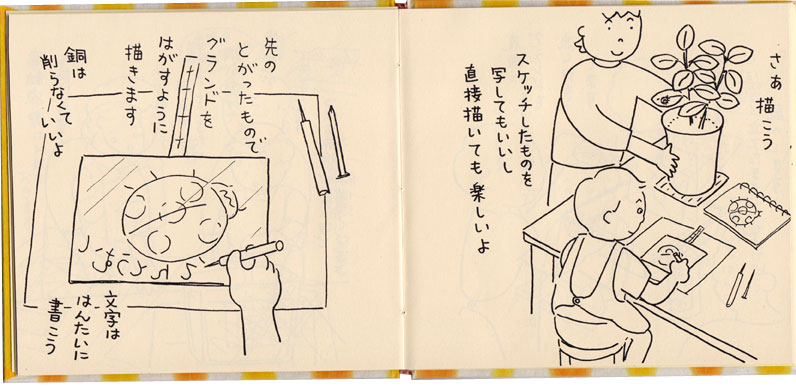 さあ 描こう
スケッチしたものを
写してもいいし
直接描いても楽しいよ
先の
とがったもので
グランドを
はがすように
描きます
銅は
削らなくていいよ
てんとうむし
文字は
はんたいに
書こう